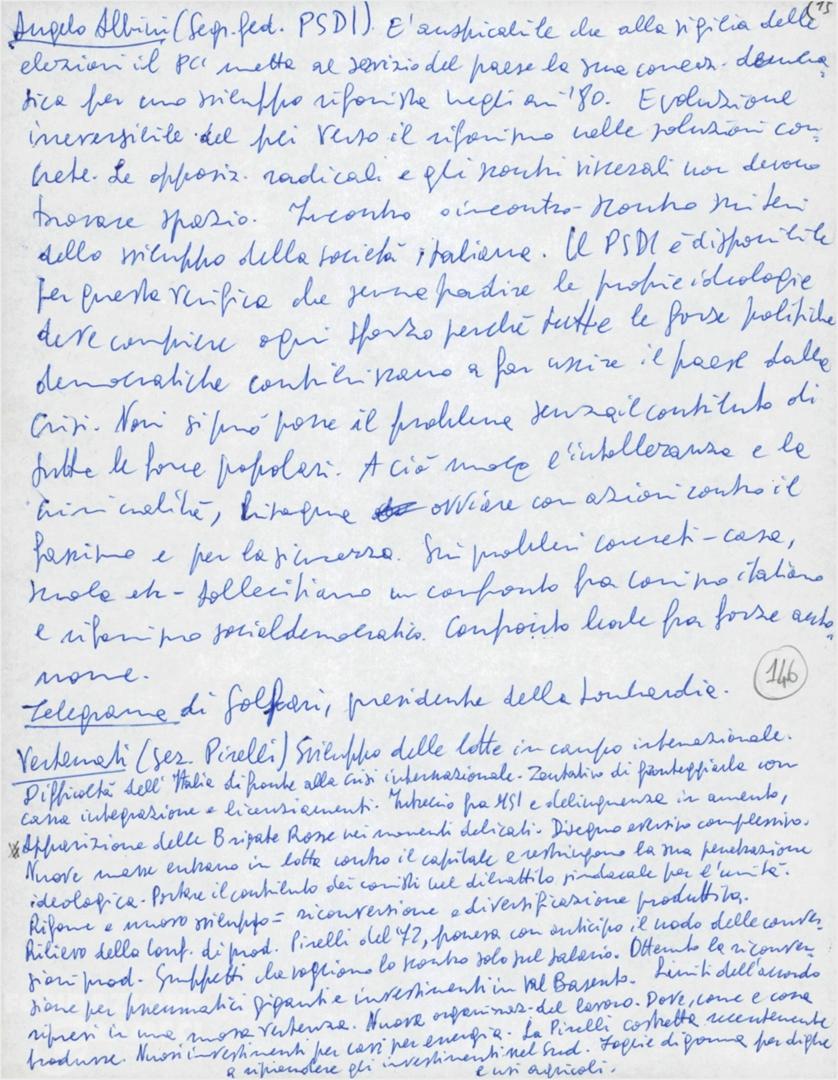 (15
Angelo Albini (Segr. fed. PSDI). E' auspicabile che alla vigilia delle
elezioni il PCI metta al servizio del paese la sua concez. democra-
tica per uno sviluppo riformista negli an. '80. Evoluzione
irreversibile del pci verso il riformismo nelle soluzioni con-
crete. Le opposiz. radicali e gli scontri viscerali non devono
trovare spazio. Incontro o incontro-scontro sui temi
dello sviluppo della società italiana. Il PSDI è disponibile
per questa verifica che senza tradire le proprie ideologie
deve compiere ogni sforzo perchè tutte le forze politiche
democratiche contribuiscano a far uscire il paese dalla
crisi. Non si può porre il problema senza il contributo di
tutte le forze popolari. A ciò nuoce l'intolleranza e la
criminalità, bisogna ovviare con azioni contro il
fascismo e per la sicurezza. Sui problemi concreti - casa,
scuola etc - sollecitiamo un confronto fra comismo italiano
e riformismo socialdemocratico. Confronto leale fra forze auto-
nome.
146
Telegramma di Golfari, presidente della Lombardia.
Vertemati (sez. Pirelli) Sviluppo delle lotte in campo internazionale.
Difficoltà dell'Italia di fronte alla crisi internazionale. Tentativo di fronteggiarla con
cassa integrazione e licenziamenti. Intreccio fra MSI e delinquenza in aumento,
Apparizione delle Brigate Rosse nei momenti delicati. Disegno eversivo complessivo.
Nuove masse entrano in lotta contro il capitale e restringono la sua penetrazione
ideologica. Portare il contributo dei comisti nel dibattito sindacale per l'unità.
Riforme e nuovo sviluppo = riconversione e diversificazione produttiva.
Rilievo della Conf. di prod. Pirelli del '72, poneva con anticipo il nodo delle conver-
sioni prod. Gruppetti che vogliono lo scontro solo sul salario. Ottenuto la riconver-
sione per pneumatici giganti e investimenti in Val Basento. Limiti dell'accordo
ripresi in una nuova vertenza. Nuova organizzaz. del lavoro. Dove, come e cosa
produrre. Nuovi investimenti per cavi per energia. La Pirelli costretta recentemente
a riprendere gli investimenti nel Sud. Foglie di gomma per dighe
e usi agricoli.